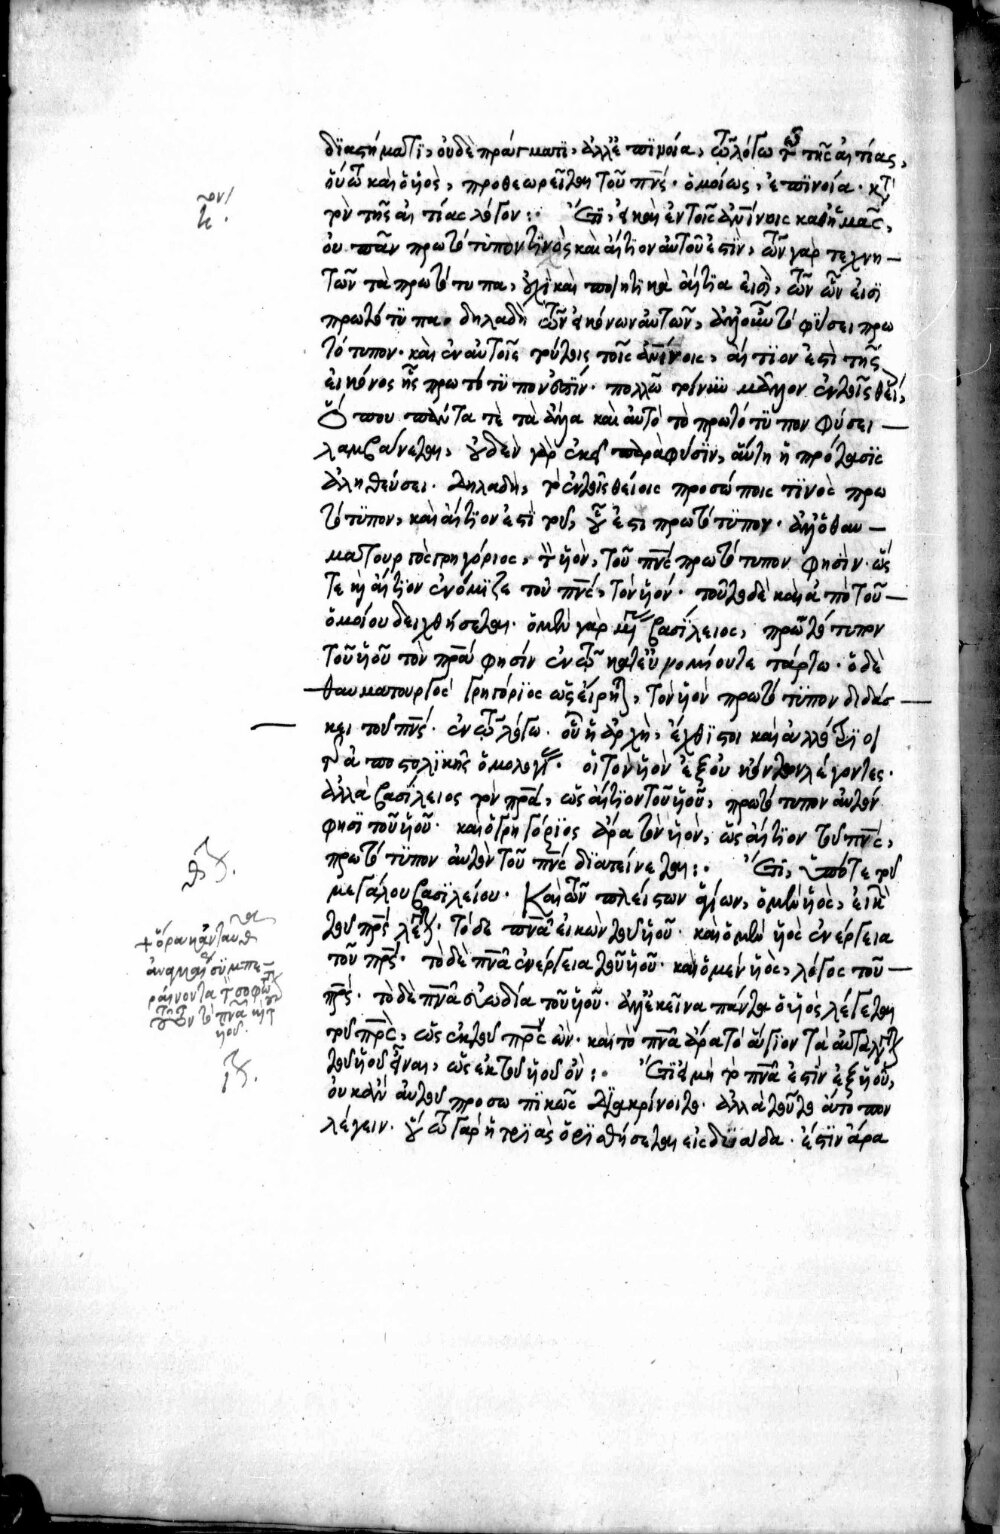 διαστήματι, οὐδὲ πράγματι, ἀλλ' ἐπινοία, τῶ λόγω τῆς αἰτίας,
οὕτω καὶ ὁ υἱὸς, προθεωρεῖται τοῦ πνς. ὁμοίως, ἐπινοία. κτ
τὸν τῆς αἰτίας λόγον :· Ἔτι, εἰ καὶ ἐν τοῖς καθ' ἡμᾶς,
οὐ πᾶν πρωτότυπον τινὸς καὶ αἴτιον αὐτοῦ ἐστὶν, τῶν γὰρ τεχνη
τῶν τὰ πρωτότυπα, οὐχὶ καὶ ποιητικὰ αἴτια εἰσὶ, τῶν ὧν εἰσι
πρωτότυπα. δηλαδὴ τῶν εἰκόνων αὐτῶν, ἀλλ' οὖν τὸ φύσει πρω
τότυπον. καὶ ἐν αὐτοῖς τούτοις τοῖς, αἴτιον ἐστὶ τῆς
εἰκόνος ἧς πρωτότυπον ἐστίν. πολλῶ τοίνυν μᾶλλον ἐν τοῖς θείοις,
ὅπου πάντα τὲ τὰ ἄλλα καὶ αὐτὸ τὸ πρωτότυπον φύσει
λαμβάνεται, οὐδὲν γὰρ ἐκεῖ παρὰ φύσιν, αὕτη ἡ πρότασις
ἀληθεύσει. δηλαδὴ, τὸ ἐν τοῖς θείοις προσώποις τινὸς πρω
τότυπον, καὶ αἴτιον ἐστὶ τοῦ, οὗ ἐστι πρωτότυπον. ἀλλ' ὁ θαυ
ματουργὸς γρηγόριος, τὸν υἱὸν, τοῦ πνς πρωτότυπον φησὶν. ὥς
τε καὶ αἴτιον ἐνόμιζε τοῦ πνς, τὸν υἱόν. τοῦτο δὲ καὶ ἀπὸ τοῦ
ὁμοίου δειχθήσεται. ὁ μὲν γὰρ μέγας βασίλειος, πρωτότυπον
τοῦ υἱοῦ τὸν πρα φησὶν ἐν τῶ κατ' εὐνομίου τετάρτω. ὁ δὲ
θαυματουργὸς γρηγόριος ὡς εἴρηται, τὸν υἱὸν πρωτότυπον διδάσ
κει τοῦ πνς. ἐν τῶ λόγω. οὗ ἡ ἀρχὴ, ἔχθιστοι καὶ ἀλλότριοι
τῆς ἀποστολικῆς ὁμολογίας. οἱ τὸν υἱὸν ἐξ οὐκ ὄντων λέγοντες.
ἀλλὰ βασίλειος τὸν πρα, ὡς αἴτιον τοῦ υἱοῦ, πρωτότυπον αὐτόν
φησι τοῦ υἱοῦ. καὶ ὁ γρηγόριος ἄρα τὸν υἱὸν, ὡς αἴτιον τοῦ πνς,
πρωτότυπον αὐτὸν τοῦ πνς διατείνεται :· Ἔτι, ὑπό τε τοῦ
μεγάλου βασιλείου. καὶ τῶν πλείστων ἁγίων, ὁ μὲν υἱὸς, εἰκὼν
τοῦ πρς λέγεται. τὸ δὲ πνα εἰκὼν τοῦ υἱοῦ. καὶ ὁ μὲν υἱὸς ἐνέργεια
τοῦ πρς. τὸ δὲ πνα ἐνέργεια τοῦ υἱοῦ. καὶ ὁ μὲν υἱὸς, λόγος τοῦ
πρς. τὸ δὲ πνα εὐωδία τοῦ υἱοῦ. ἀλλ' ἐκεῖνα πάντα ὁ υἱὸς λέγεται
τοῦ πρς, ὡς ἐκ τοῦ πρς ὤν. καὶ τὸ πνα ἄρα τὸ ἅγιον τὰ αὐτὰ λέγεται
τοῦ υἱοῦ εἶναι, ὡς ἐκ τοῦ υἱοῦ ὄν :· Ἔτι εἰ μὴ τὸ πνα ἐστὶν ἐξ υἱοῦ,
οὐκ ἂν αὐτοῦ προσωπικῶς διακρίνοιτο. ἀλλὰ τοῦτο ἄτοπον
λέγειν. οὕτω γὰρ ἡ τριὰς ὁρισθήσεται εἰς δυάδα. ἔστιν ἄρα
+ ὅρα κἀνταῦθα
ἀναγκαι συμπε
ραίνοντα σοφω
τὸ πνα
υἱοῦ.